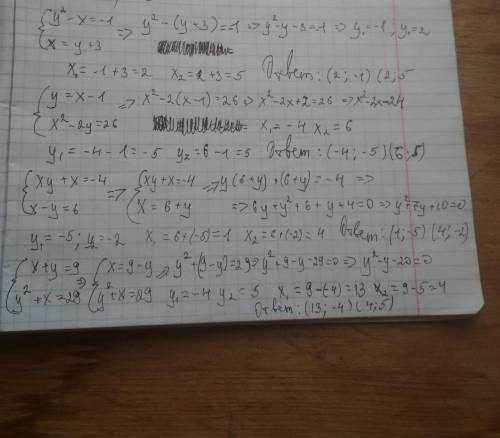 {y² - x = -1 => y² - (y+3) = -1 => y² - y - 3 = -1 => y₁ = -1, y₁ = 2
{x = y + 3
x₁ = -1 + 3 = 2 x₂ = 2 + 3 = 5 Ответ: (2; -1) (2; 5
{y = x - 1 => x² - 2(x-1) = 26 => x² - 2x + 2 = 26 => x² - 2x - 24
{x² - 2y = 26 x₁ = -4 x₂ = 6
y₁ = -4 - 1 = -5 y₂ = 6 - 1 = 5 Ответ: (-4; -5) (6; 5)
{xy + x = -4 => {xy + x = -4 => y(6+y) + (6+y) = -4 =>
{x - y = 6 {x = 6 + y => 6y + y² + 6 + y + 4 = 0 => y² + 7y + 10 = 0
y₁ = -5; y = -2 x₁ = 6 + (-5) = 1 x₂ = 6 + (-2) = 4 Ответ: (1; -5) (4; -2)
{x + y = 9 => {x = 9 - y => y² + (9-y) = 29 => y² + 9 - y - 29 = 0 => y² - y - 20 = 0
{y² + x = 29 {y² + x = 29 y₁ = -4 y₂ = 5 x₁ = 9 - (-4) = 13 x₂ = 9 - 5 = 4
Ответ: (13; -4) (4; 5)